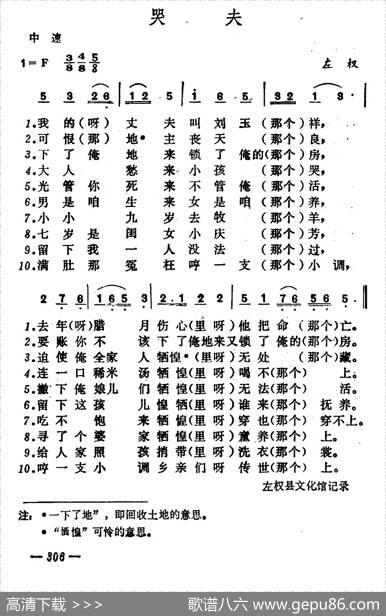 哭 夫
中 速
1=F 3/8 4/8 5/8 左 权
5 3 26 | 12 5 | 5 5 5 3 2 | 1 3·
1.我的(呀)丈 夫叫刘玉(那个)祥,
2.可恨(那)地*主丧天(那个)良,
3.下了俺地来锁了俺的(那个)房,
4.大人愁来小孩(那个)哭,
5.光管你死来不管俺(那个)活,
6.男是咱生来女是咱(那个)养,
7.小小九岁去牧(那个)羊,
8.七岁是闺女小庆(那个)芳,
9.留下我一人没法(那个)过,
10.满肚那冤枉哼一支(那个)小调,
2 7 6 | 1 6 5 3 | 2·1 2 2 | 5 1 7 6 | 5 5·
1.去年(呀)腊月伤心(里呀)他把命(那个)亡。
2.要账你不该下了俺地来又锁了俺的(那个)房。
3.迫使俺全家人牺惶*(里呀)无处(那个)藏。
4.连一口稀米汤牺惶(里呀)喝不(那个)上。
5.撇下俺娘儿们牺惶(里呀)无法(那个)活。
6.留下这孩儿惶牺(里呀)谁来(那个)抚养。
7.吃不饱来牺惶(里呀)穿也(那个)穿不上。
8.寻了个婆家牺惶(里呀)童养(那个)上。
9.给人家照孩捎带(里呀)洗衣(那个)裳。
10.哼一支小调乡亲们(里呀)传世(那个)上。
左权县文化馆记录
注:*一下了地",即回收土地的意思。
*"牺惶"可怜的意思。
— 306 —
高清下载 >>> 歌谱八六 www.gepu86.com